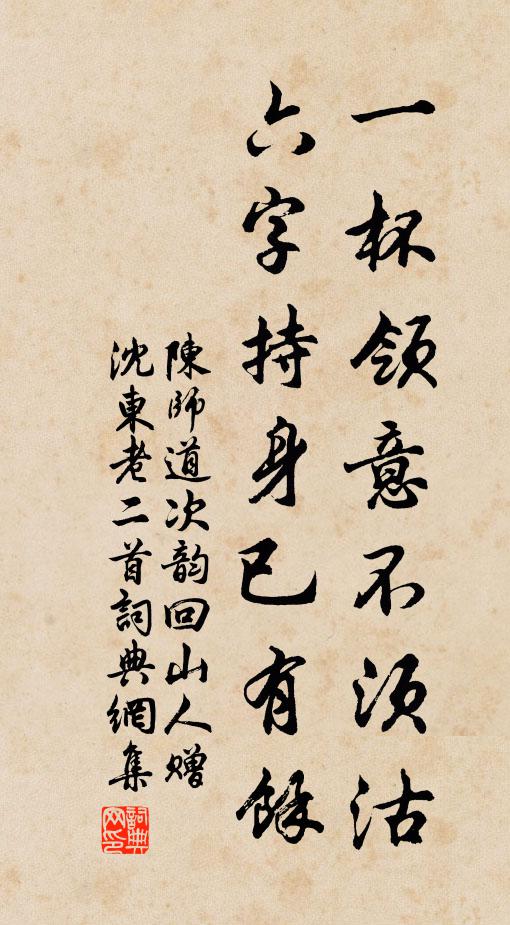 一杯領意不須沽
六字持身已有餘
陳師道次韵回山人贈
沈東老二首詞典網集
詞典网印